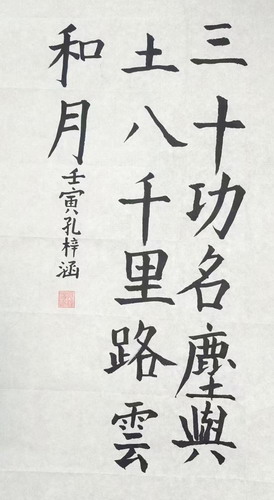 三十功名塵與
土八千里路雲
和月
壬寅孔梓涵